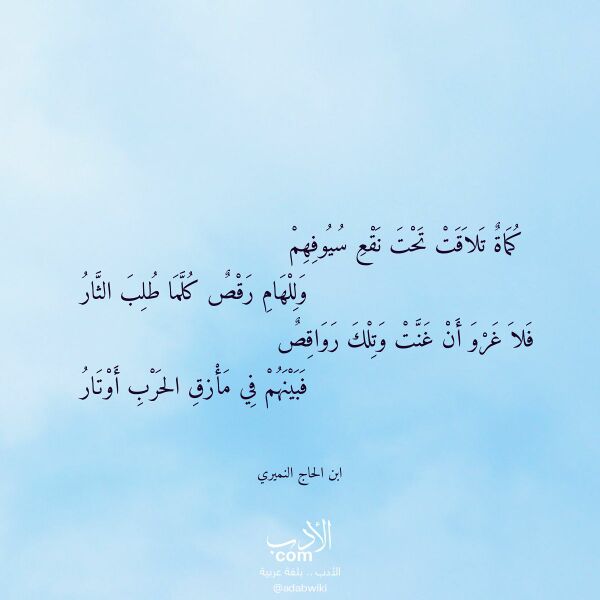 كُمَاةٌ تَلاَقَتْ تَحْتَ نَقْعِ سُيُوفِهِمْ
وَلِلْهَامِ رَقْصٌ كُلَّمَا طُلِبَ الثَّارُ
فَلاَ غَرْوَ أَنْ غَنَّتْ وَتِلْكَ رَوَاقِصٌ
فَبَيْنَهُمْ فِي مَأْزقِ الحَرْبِ أَوْتَارُ
ابن الحاج النميري
الأدب
.com
الأدب .. بلغة عربية
@adabwiki